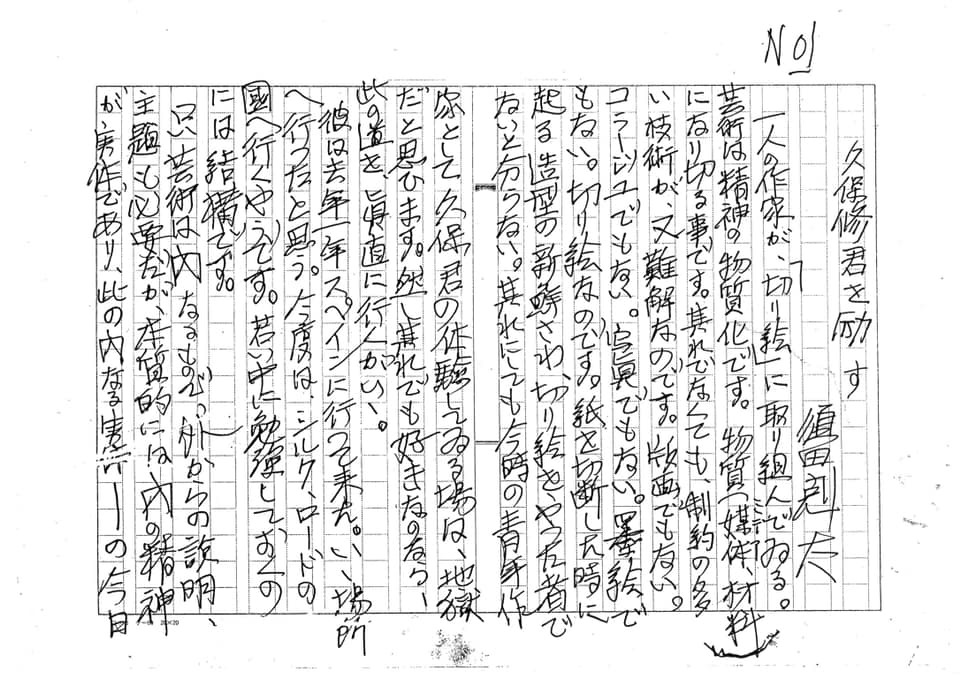 No1
久保修君を励す
須田剋太
一人の作家が、「切り絵」に取り組んでゐる。
芸術は精神の物質化です。物質(媒体、材料)
になり切る事です。其れでなくても、制約の多
い技術が、又難解なのです。版画でもない。
コラージュでもない。写真でもない。墨絵で
もない。切り絵なのです。紙を切断した時に
起る造型の新鮮さわ、切り絵をやった者で
ないと分らない。其れにしても今時の青年作
家として久保君の体験してゐる場は、地獄
だと思ひます。然し其れでも好きなのなら、
此の道を真直に行くがいい。
彼は去年一年スペインに行って来た。いい場所
へ行ったと思う。今度は、シルク、ロードの
国へ行くやうです。若い中に勉強しておくの
には結構です。
只、芸術は内なるもので、外からの説明、
主題も必要だが、本質的には、内の精神
が、実体であり、此の内なる ーの今日